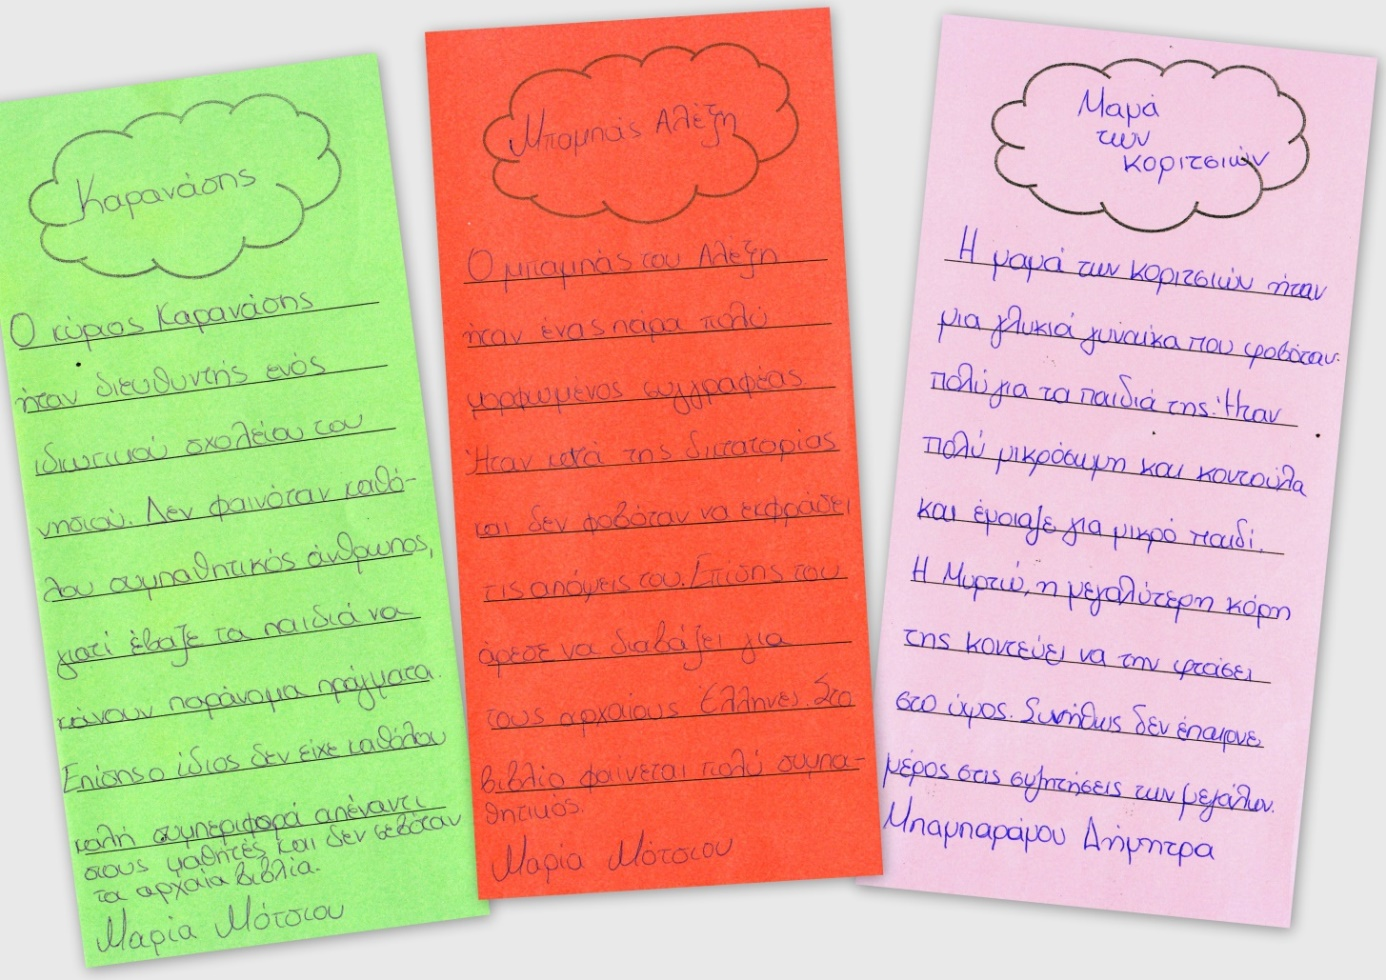 Καρανάσης
Ο κύριος Καρανάσης
ήταν διευθυντής ενός
ιδιωτικού σχολείου του
νησιού. Δεν φαινόταν καθό-
λου συμπαθητικός άνθρωπος,
γιατί έβαζε τα παιδιά να
κάνουν παράνομα πράγματα.
Επίσης ο ίδιος δεν είχε καθόλου
καλή συμπεριφορά απέναντι
στους μαθητές και δεν σεβόταν
τα αρχαία βιβλία.
Μαρία Μότσιου
Μπαμπάς Αλέξη
Ο μπαμπάς του Αλέξη
ήταν ένας πάρα πολύ
μορφωμένος συγγραφέας
Ήταν κατά της δικτατορίας
και δεν φοβόταν να εκφράσει
τις απόψεις του. Επίσης του
άρεσε να διαβάζει για
τους αρχαίους Έλληνες. Στο
βιβλίο φαίνεται πολύ συμπα-
θητικός.
Μαρία Μότσιου
Μαμά
των
κοριτσιών
Η μαμά των κοριτσιών ήταν
μια γλυκιά γυναίκα που φοβόταν
πολύ για τα παιδιά της. Ήταν
πολύ μικρόσωμη και κοντούλα
και έμοιαζε για μικρό παιδί.
Η Μυρτώ, η μεγαλύτερη κόρη
της κοντεύει να την φτάσει
στο ύψος. Συνήθως δεν έπαιρνε
μέρος στις συζητήσεις των μεγάλων.
Μπαμπαράμου Δήμητρα